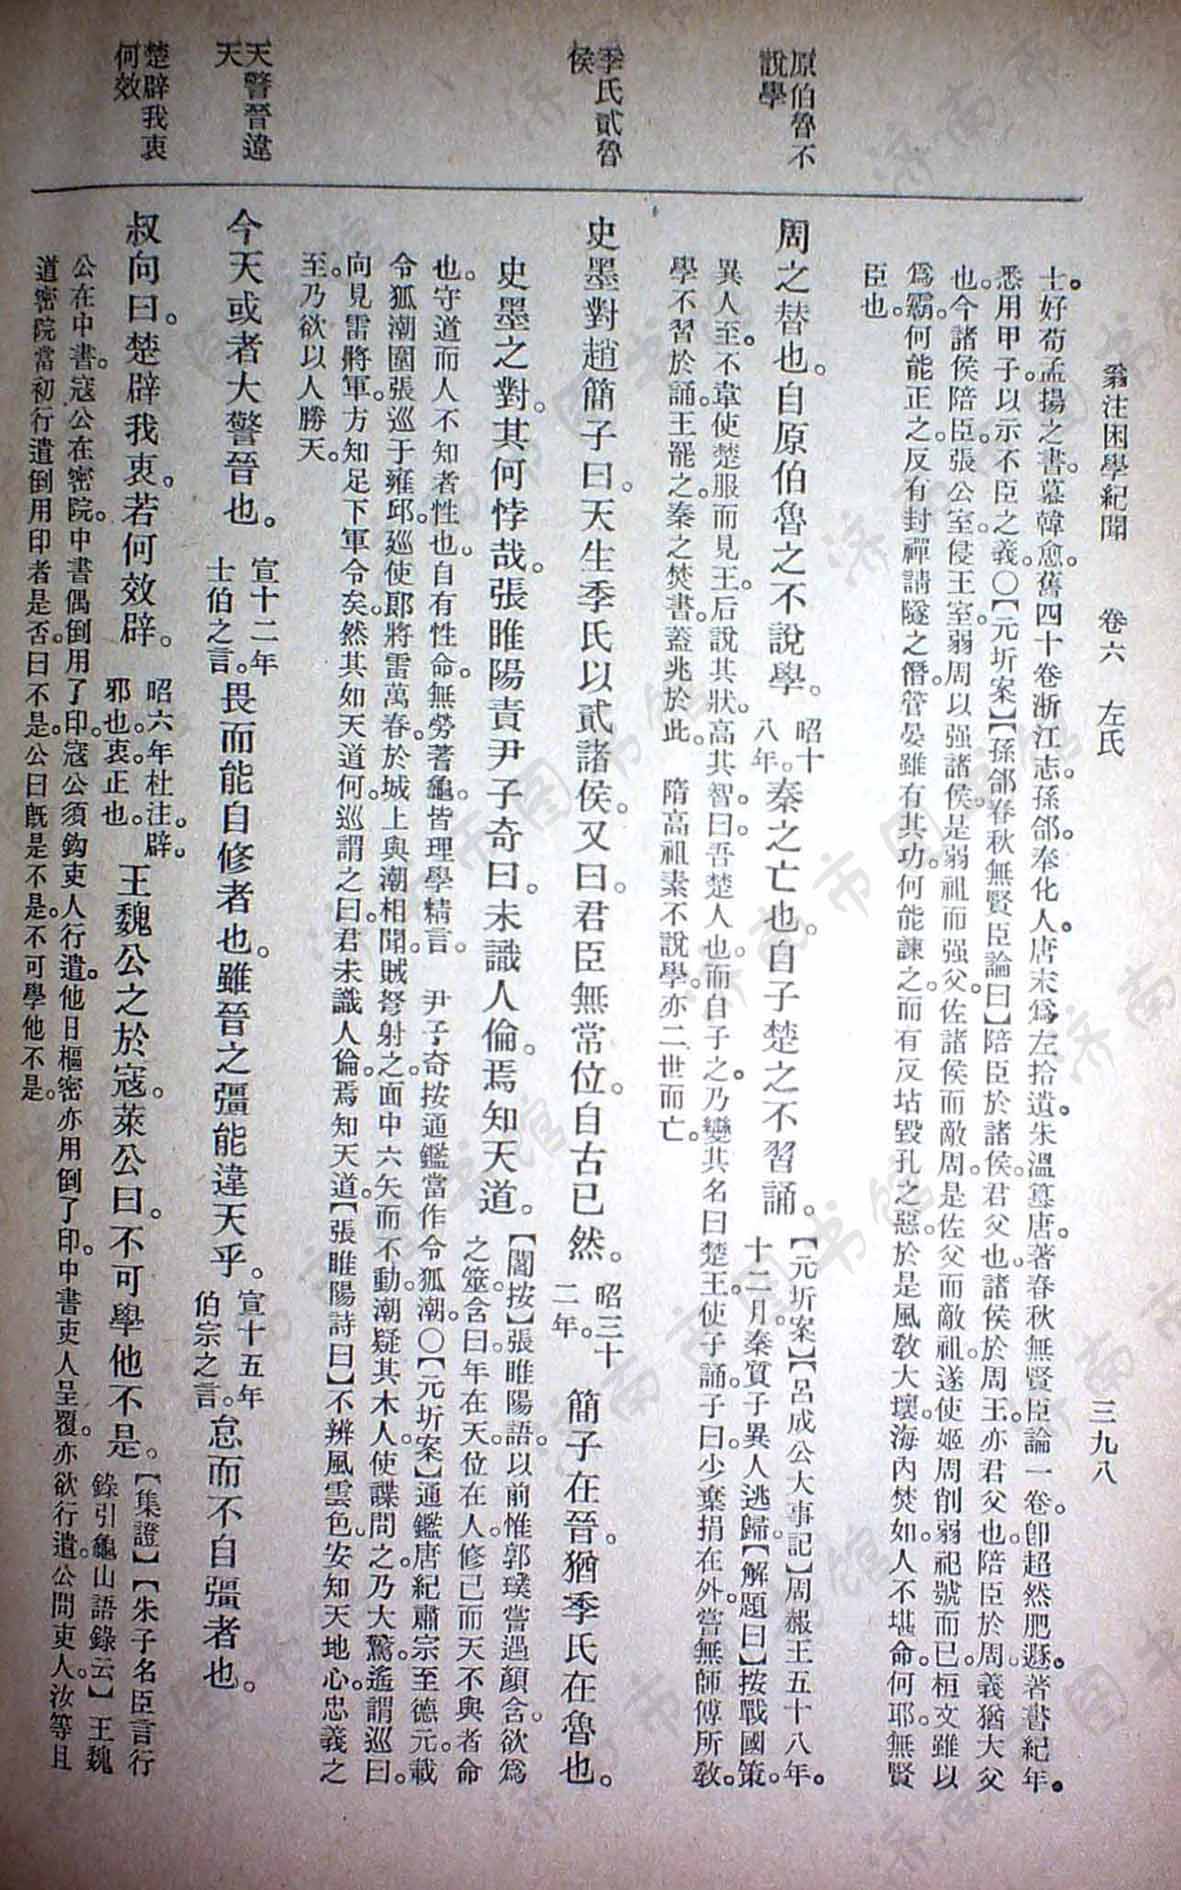 翁注困學紀聞　卷六　左氏　三九八
士。好荀孟揚之書。慕韓愈。舊四十卷。浙江志。孫郃。奉化人。唐末爲左拾遺。朱溫篡唐。著春秋無賢臣論一卷。卽超然肥遯。著書紀年。
悉用甲子。以示不臣之義。○【元圻案】【孫郃春秋無賢臣論曰】陪臣於諸侯。君父也。諸侯於周王。亦君父也。陪臣於周。義猶大父
也。今諸侯陪臣。張公室。侵王室。弱周以强諸侯。是弱祖而强父。佐諸侯而敵周。是佐父而敵祖。遂使姬周削弱。祀號而已。桓文雖以
爲霸。何能正之。反有封禪請隧之僭。管晏雖有其功。何能諫之。而有反坫毀孔之惡。於是風敎大壞。海內焚如。人不堪命。何耶。無賢
臣也。
原伯魯不
說學
周之替也。自原伯魯之不說學。昭十
八年。秦之亡也。自子楚之不習誦。【元圻案】【呂成公大事記】周赧王五十八年。
十二月。秦質子異人逃歸。【解題曰】按戰國策。
異人至。不韋使楚服而見王后。說其狀。高其智。曰。吾楚人也。而自子之。乃變其名曰楚。王使子誦。子曰。少棄捐在外。嘗無師傅所敎
學。不習於誦。王罷之。秦之焚書。蓋兆於此。　隋高祖素不說學。亦二世而亡。
季氏貳魯
侯
史墨對趙簡子曰。天生季氏。以貳諸侯。又曰。君臣無常位。自古已然。昭三十
二年。　簡子在晉。猶季氏在魯也。
史墨之對。其何悖哉。張睢陽責尹子奇曰。未識人倫。焉知天道。【閻按】張睢陽語。以前惟郭璞嘗遇顏含。欲爲
之筮。含曰。年在天。位在人。修己而天不與者命
也。守道而人不知者性也。自有性命。無勞蓍龜。皆理學精言。　尹子奇按通鑑當作令狐潮。○【元圻案】通鑑唐紀肅宗至德元載
令狐潮圍張巡于雍邱。廵使郞將雷萬春。於城上與潮相聞。賊弩射之。面中六矢而不動。潮疑其木人。使諜問之。乃大驚。遙謂巡曰。
向見雷將軍。方知足下軍令矣。然其如天道何。巡謂之曰。君未識人倫。焉知天道。【張睢陽詩曰】不辨風雲色。安知天地心。忠義之
至。乃欲以人勝天。
天警晉違
天
今天或者大警晉也。宣十二年
士伯之言。畏而能自修者也。雖晉之彊。能違天乎。宣十五年
伯宗之言。怠而不自彊者也。
楚辟我衷
何效
叔向曰。楚辟我衷。若何效辟。昭六年杜注。辟。
邪也。衷。正也。王魏公之於寇萊公曰。不可學他不是。【集證】【朱子名臣言行
錄引龜山語錄云】王魏
公在中書。寇公在密院。中書偶倒用了印。寇公須鈎吏人行遣。他日樞密亦用倒了印。中書吏人呈覆。亦欲行遣。公問吏人。汝等且
道密院當初行遣倒用印者是否。曰不是。公曰旣是不是。不可學他不是。